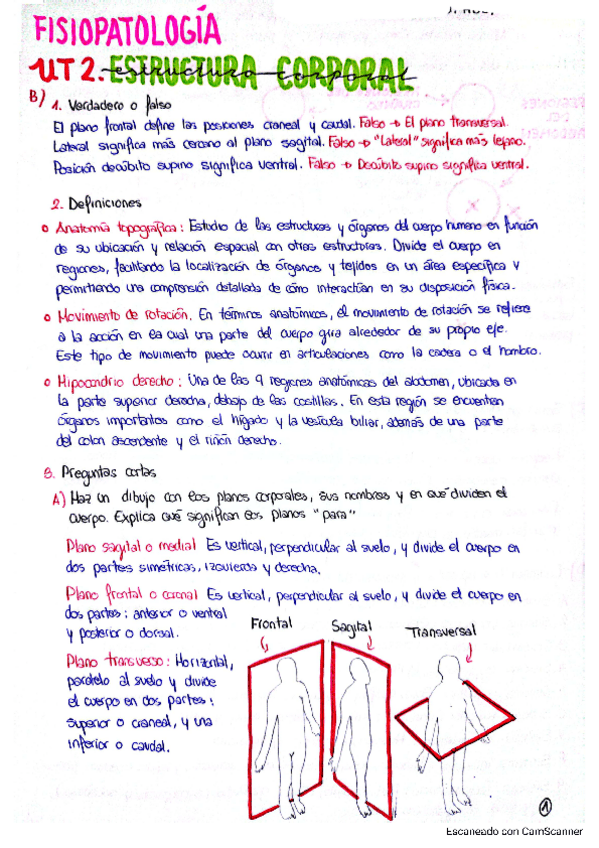 FISIOPATOLOGÍA
UT 2. ESTRUCTURA CORPORAL
B) 1. Verdadero o falso
El plano frontal define las posiciones craneal y caudal. Falso → El plano transversal.
Lateral significa más cercano al plano sagital. Falso → "Lateral" significa más lejano.
Posición decúbito supino significa ventral. Falso → Decúbito supino significa ventral.
2. Definiciones
Anatomía topográfica: Estudio de las estructuras y órganos del cuerpo humano en función
de su ubicación y relación espacial con otras estructuras. Divide el cuerpo en
regiones, facilitando la localización de órganos y tejidos en un área específica y
permitiendo una comprensión detallada de cómo interactúan en su disposición física.
Movimiento de rotación. En términos anatómicos, el movimiento de rotación se refiere
a la acción en la cual una parte del cuerpo gira alrededor de su propio eje.
Este tipo de movimiento puede ocurrir en articulaciones como la cadera o el hombro.
Hipocondrio derecho: Una de las 9 regiones anatómicas del abdomen, ubicada en
la parte superior derecha, debajo de las costillas. En esta región se encuentran
órganos importantes como el hígado y la vesícula biliar, además de una parte
del colon ascendente y el riñón derecho.
3. Preguntas cortas
A) Haz un dibujo con los planos corporales, sus nombres y en qué dividen el
cuerpo. Explica qué significan los planos "para"
Plano sagital o medial Es vertical, perpendicular al suelo, y divide el cuerpo en
dos partes simétricas, izquierda y derecha.
Plano frontal o coronal Es vertical, perpendicular al suelo, y divide el cuerpo en
dos partes: anterior o ventral
y posterior o dorsal.
Plano transverso: Horizontal,
paralelo al suelo y divide
el cuerpo en dos partes:
superior o craneal, y una
inferior o caudal.
Frontal
Sagital
Transversal
1
Escaneado con CamScanner